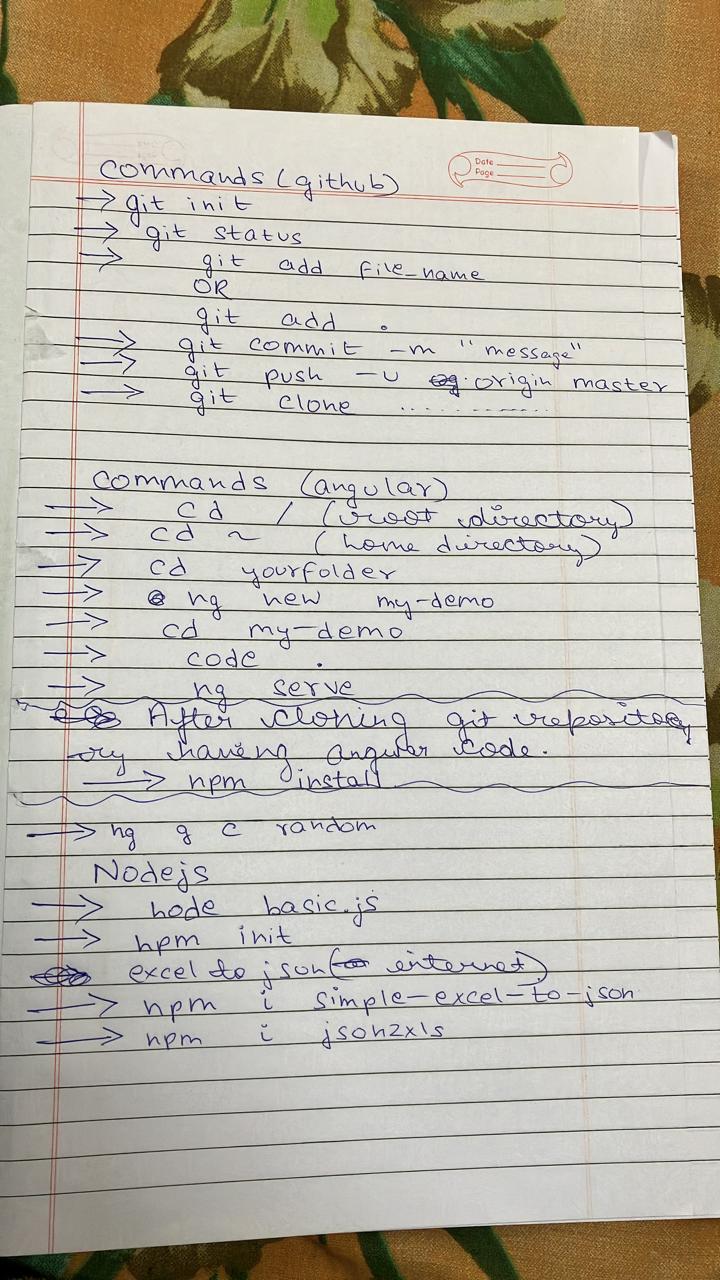 Date
Page
Commands (github)
→ git init
→ git status
→ git add file_name
OR
git add .
→ git commit -m "message"
→ git push -u origin master
→ git clone ............
Commands (angular)
→ cd / (root directory)
→ cd ~ (home directory)
→ cd yourfolder
→ ng new my-demo
→ cd my-demo
→ code .
→ ng serve
After cloning git repository
-ry having angular code.
→ npm install
→ ng g c random
Nodejs
→ node basic.js
→ npm init
excel to json (internet)
→ npm i simple-excel-to-json
→ npm i json2xls